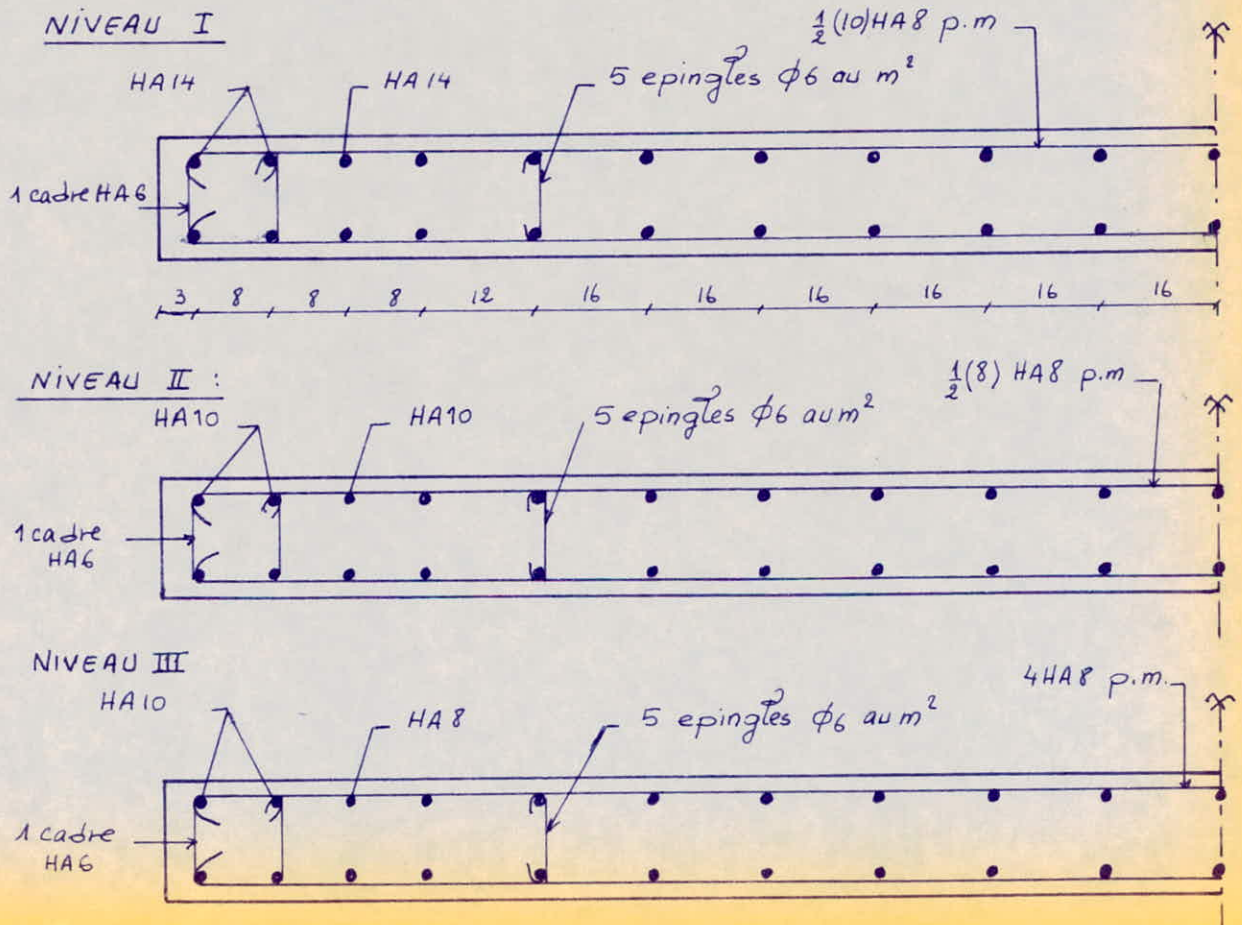 NIVEAU I
½(10)HA8 p.m
HA14
HA14
5 epingles ϕ6 au m²
1 cadre HA6
3 8 8 8 12 16 16 16 16 16 16
NIVEAU II :
½(8) HA8 p.m
HA10
HA10
5 epingles ϕ6 au m²
1 cadre
HA6
NIVEAU III
4HA8 p.m.
HA10
HA8
5 epingles ϕ6 au m²
1 cadre
HA6